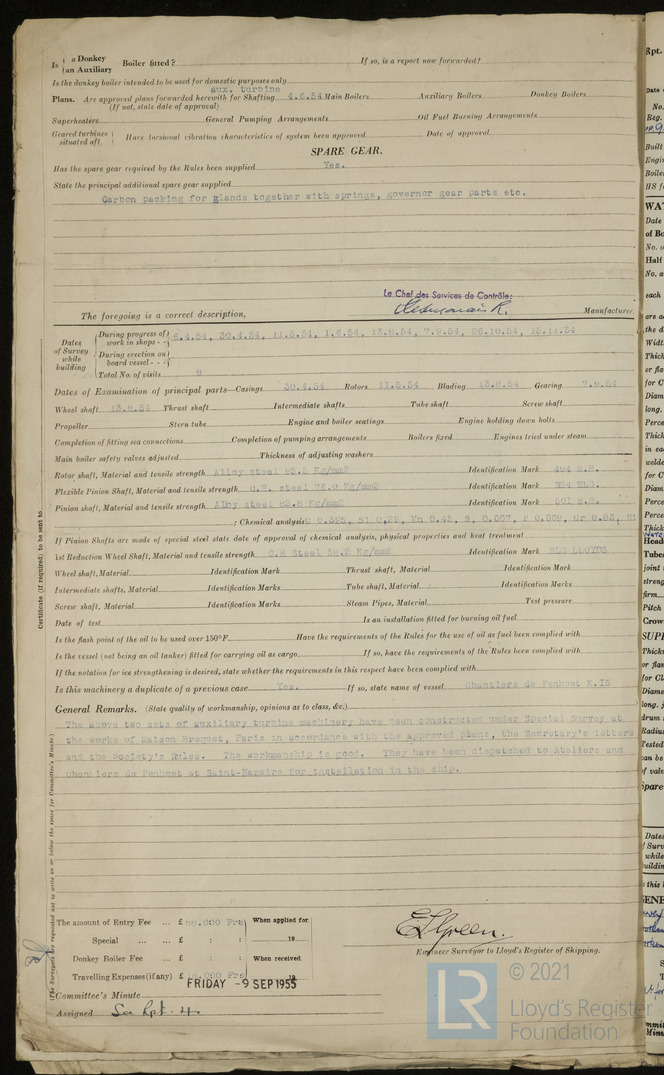 Is { a Donkey / an Auxiliary } Boiler fitted? If so, is a report now forwarded?
Is the donkey boiler intended to be used for domestic purposes only
aux. turbine
Plans. Are approved plans forwarded herewith for Shafting 4.5.54 Main Boilers Auxiliary Boilers Donkey Boilers
(If not, state date of approval)
Superheaters General Pumping Arrangements Oil Fuel Burning Arrangements
Geared turbines situated aft. } Have torsional vibration characteristics of system been approved Date of approval
SPARE GEAR.
Has the spare gear required by the Rules been supplied Yes.
State the principal additional spare gear supplied
Carbon packing for glands together with springs, governor gear parts etc.
Le Chef des Services de Contrôle:
The foregoing is a correct description, Manufacturer.
Dates of Survey while building
During progress of work in shops - - 6.4.54, 30.4.54, 11.5.54, 1.6.54, 13.8.54, 7.9.54, 26.10.54, 15.11.54
During erection on board vessel - - -
Total No. of visits 8
Dates of Examination of principal parts—Casings 30.4.54 Rotors 11.5.54 Blading 13.8.54 Gearing 7.9.54
Wheel shaft 13.8.54 Thrust shaft Intermediate shafts Tube shaft Screw shaft
Propeller Stern tube Engine and boiler seatings Engine holding down bolts
Completion of fitting sea connections Completion of pumping arrangements Boilers fixed Engines tried under steam
Main boiler safety valves adjusted Thickness of adjusting washers
Rotor shaft, Material and tensile strength Alloy steel Kg/mm2 Identification Mark
Flexible Pinion Shaft, Material and tensile strength steel Kg/mm2 Identification Mark
Pinion shaft, Material and tensile strength Alloy steel Kg/mm2 Identification Mark
; Chemical analysis
If Pinion Shafts are made of special steel state date of approval of chemical analysis, physical properties and heat treatment
1st Reduction Wheel Shaft, Material and tensile strength Steel Kg/mm2 Identification Mark LLOYDS
Wheel shaft, Material Identification Mark Thrust shaft, Material Identification Mark
Intermediate shafts, Material Identification Marks Tube shaft, Material Identification Marks
Screw shaft, Material Identification Marks Steam Pipes, Material Test pressure
Date of test Is an installation fitted for burning oil fuel
Is the flash point of the oil to be used over 150°F. Have the requirements of the Rules for the use of oil as fuel been complied with
Is the vessel (not being an oil tanker) fitted for carrying oil as cargo If so, have the requirements of the Rules been complied with
If the notation for ice strengthening is desired, state whether the requirements in this respect have been complied with
Is this machinery a duplicate of a previous case Yes. If so, state name of vessel Chantiers de Penhoet
General Remarks. (State quality of workmanship, opinions as to class, &c.)
The above two sets of auxiliary turbine machinery have been constructed under Special Survey at
the works of Maison Breguet, Paris in accordance with the approved plans, the Secretary's letters
and the Society's Rules. The workmanship is good. They have been dispatched to Ateliers and
Chantiers de Penhoet at Saint-Nazaire for installation in the ship.
The amount of Entry Fee ... £ Frs When applied for
Special ... ... £ : : 19
Donkey Boiler Fee ... £ : : When received
Travelling Expenses (if any) £ Frs 19
FRIDAY -9 SEP 1955
Engineer Surveyor to Lloyd's Register of Shipping.
Committee's Minute
Assigned See Rpt. 4
Certificate (if required) to be sent to
(The Surveyors are requested not to write on or below the space for Committee's Minute.)
LR © 2021
Lloyd's Register
Foundation